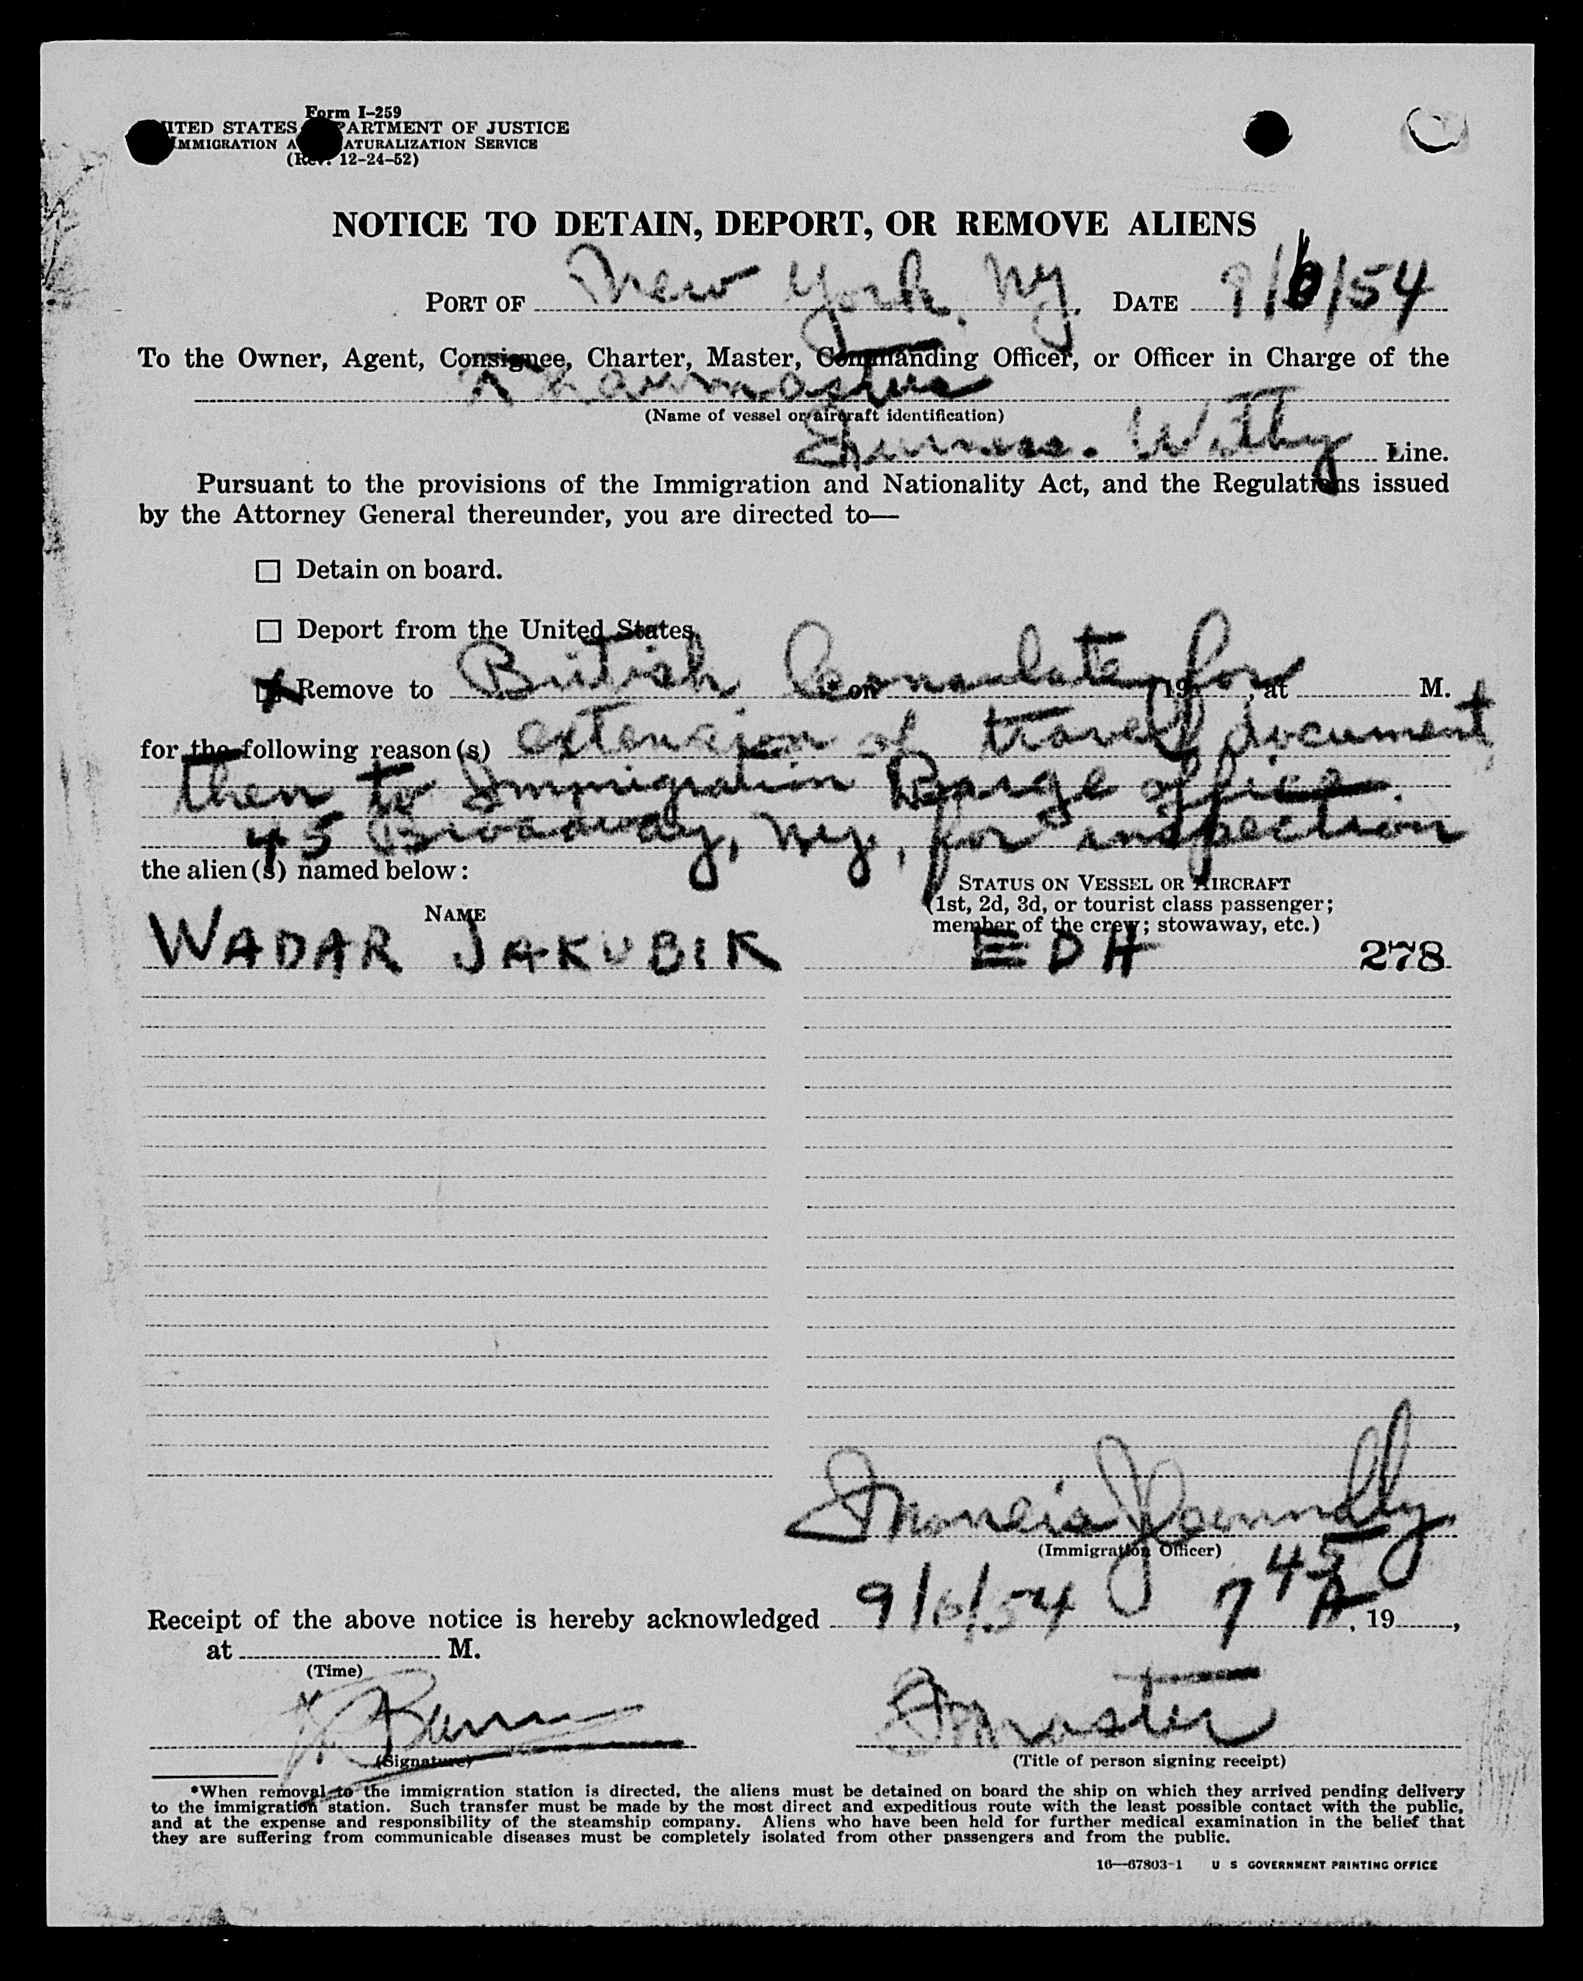 Form I–259
ITED STATES PARTMENT OF JUSTICE
IMMIGRATION A ATURALIZATION SERVICE
(Rev. 12–24–52)
NOTICE TO DETAIN, DEPORT, OR REMOVE ALIENS
PORT OF New York, NY. DATE 9/6/54
To the Owner, Agent, Consignee, Charter, Master, Commanding Officer, or Officer in Charge of the
(Name of vessel or aircraft identification)
Furness. Withy Line.
Pursuant to the provisions of the Immigration and Nationality Act, and the Regulations issued
by the Attorney General thereunder, you are directed to—
☐ Detain on board.
☐ Deport from the United States.
☒ Remove to British Consulate for *on 19 , at M.
for the following reason(s) extension of travel document,
then to Immigration Barge office.
45 Broadway, NY, for inspection
the alien(s) named below:
STATUS ON VESSEL OR AIRCRAFT
(1st, 2d, 3d, or tourist class passenger;
NAME
member of the crew; stowaway, etc.)
WADAR JAKUBIK EDH 278
Francis J Connolly
(Immigration Officer)
Receipt of the above notice is hereby acknowledged 9/6/54 7 45 A, 19 ,
at M.
(Time)
Master
(Signature) (Title of person signing receipt)
*When removal to the immigration station is directed, the aliens must be detained on board the ship on which they arrived pending delivery
to the immigration station. Such transfer must be made by the most direct and expeditious route with the least possible contact with the public,
and at the expense and responsibility of the steamship company. Aliens who have been held for further medical examination in the belief that
they are suffering from communicable diseases must be completely isolated from other passengers and from the public.
16—67803-1 U S GOVERNMENT PRINTING OFFICE